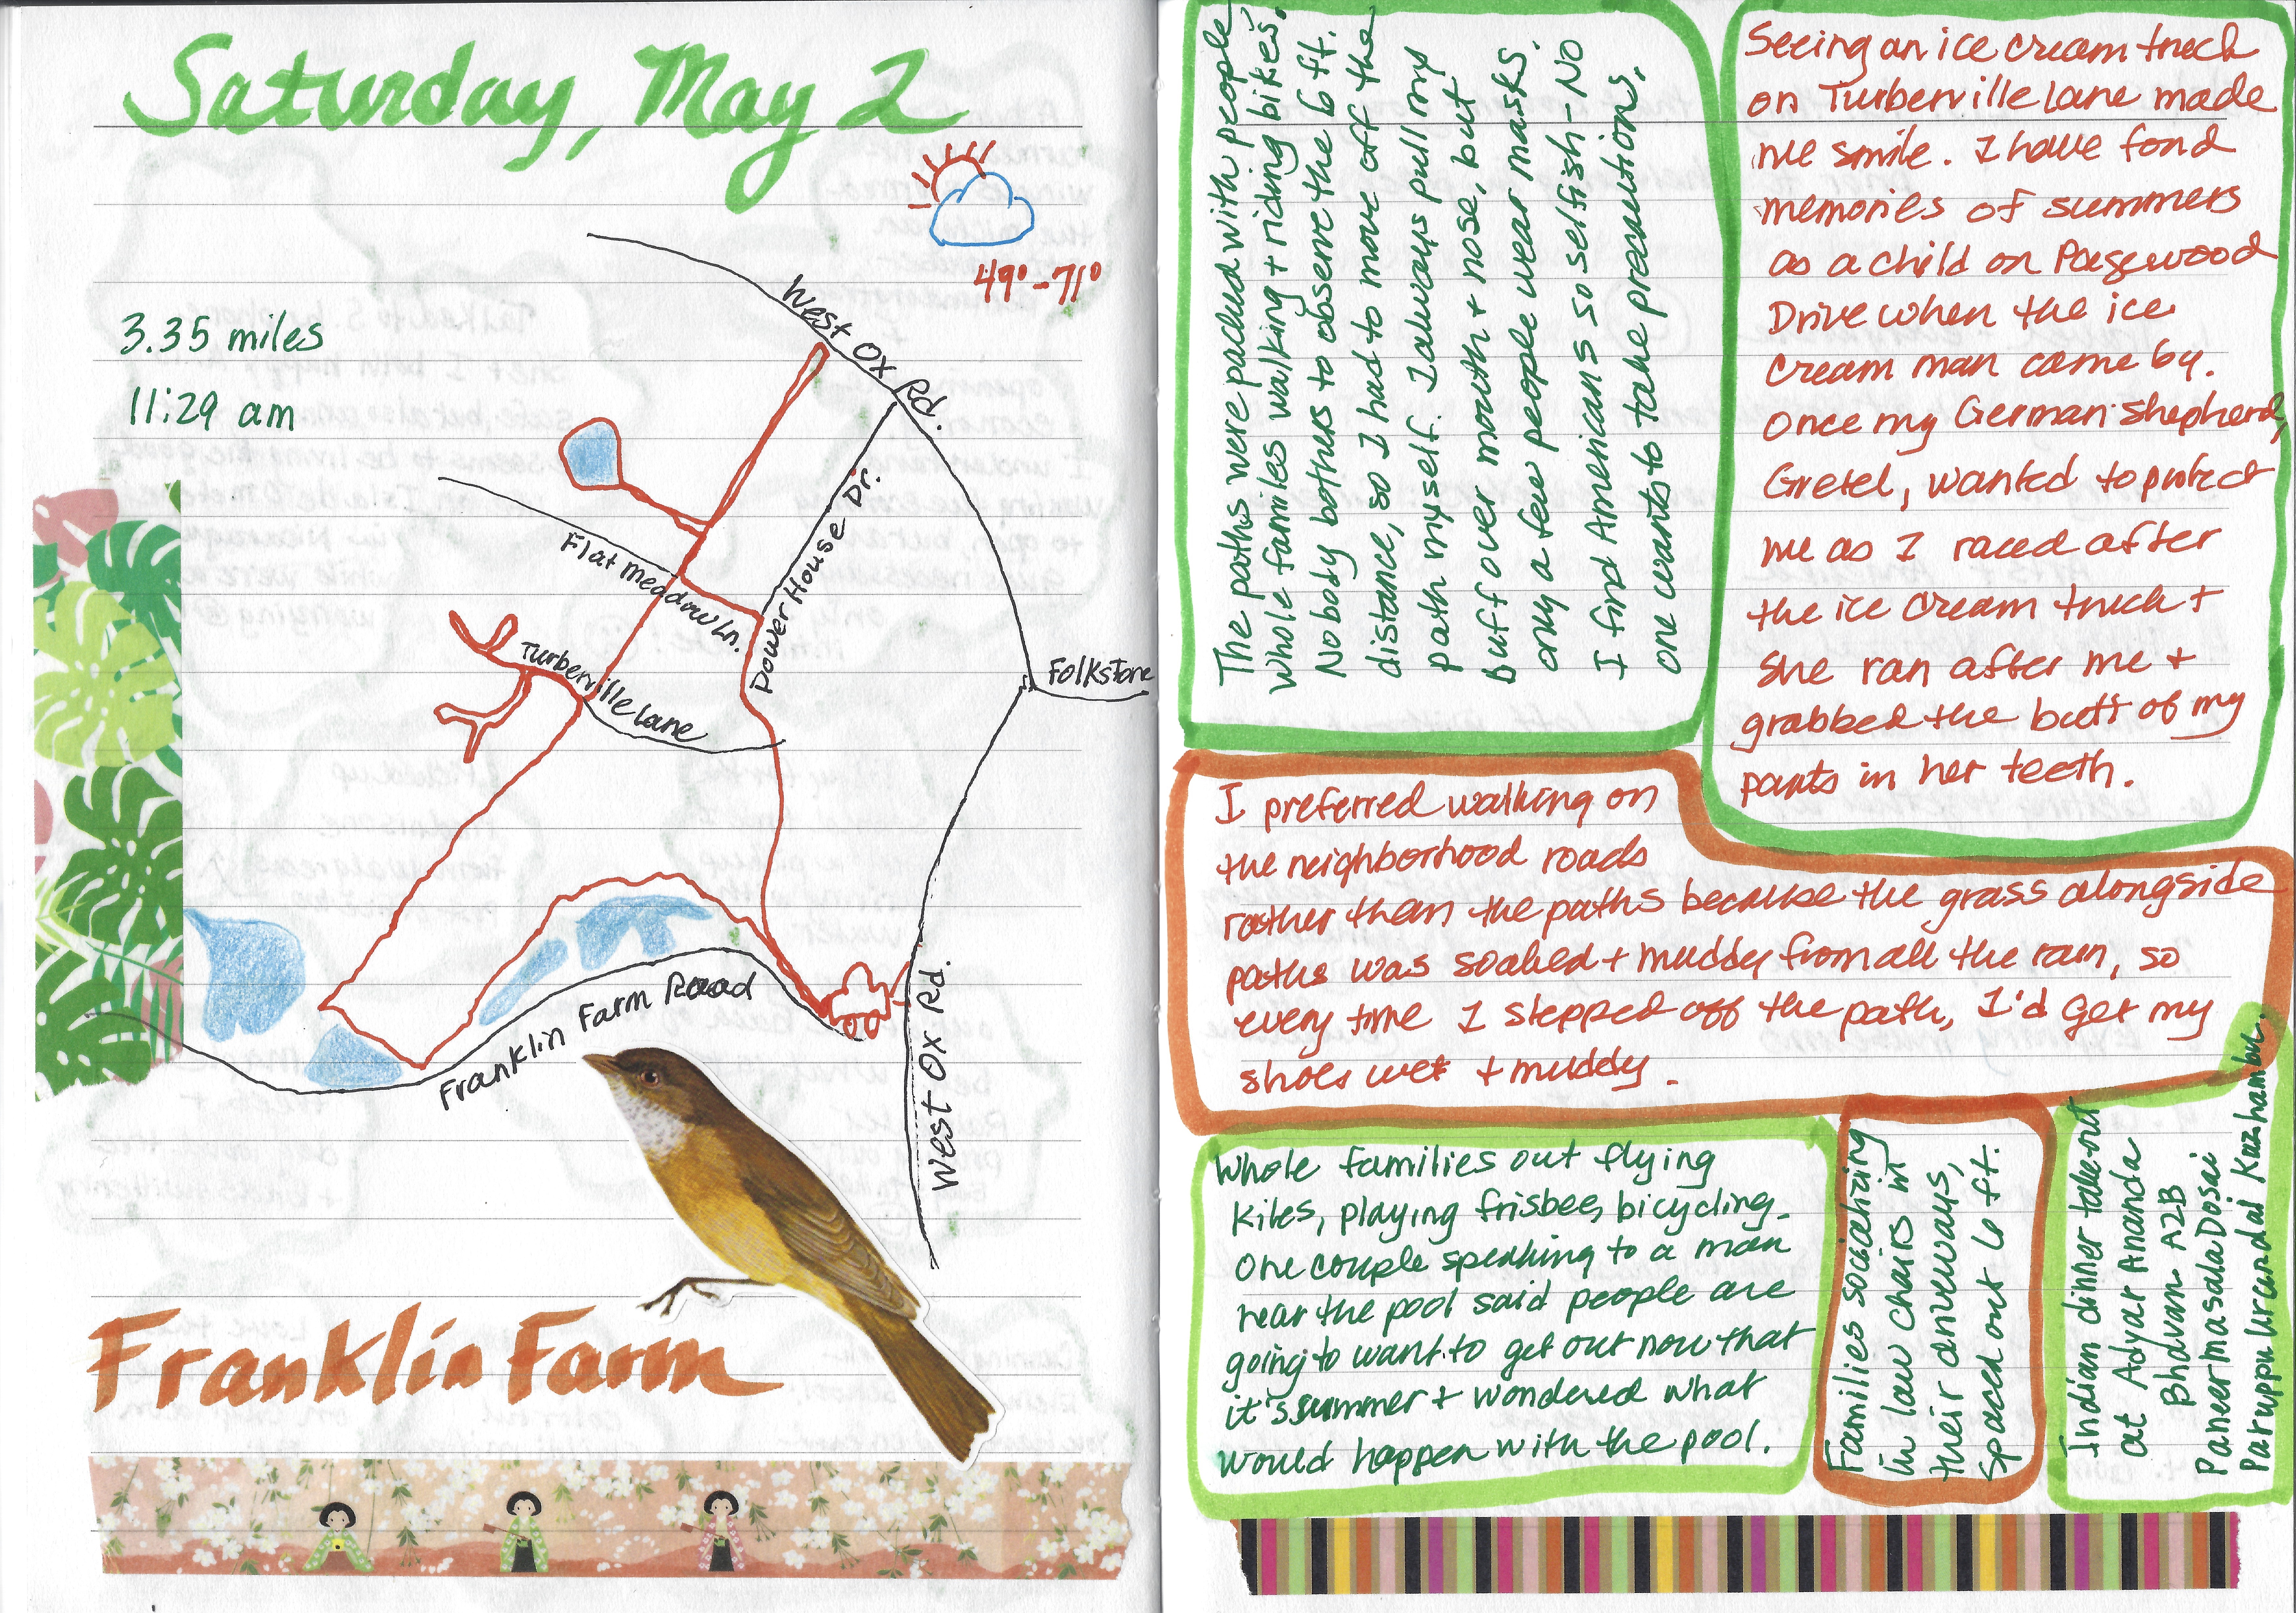 Saturday, May 2
49°-71°
3.35 miles
11:29 am
West Ox Rd.
Flat Meadow Ln.
Power House Dr.
Turberville Lane
Folkstone
Franklin Farm Road
West Ox Rd.
Franklin Farm
The paths were packed with people
whole families walking + riding bikes.
Nobody bothers to observe the 6 ft.
distance, so I had to move off the
path myself. I always pull my
buff over mouth + nose, but
only a few people wear masks.
I find Americans so selfish - No
one wants to take precautions.
Seeing an ice cream truck
on Turberville Lane made
me smile. I have fond
memories of summers
as a child on Pagewood
Drive when the ice
cream man came by.
Once my German shepherd,
Gretel, wanted to protect
me as I raced after
the ice cream truck +
she ran after me +
grabbed the butt of my
pants in her teeth.
I preferred walking on
the neighborhood roads
rather than the paths because the grass alongside
paths was soaked + muddy from all the rain, so
every time I stepped off the path, I'd get my
shoes wet + muddy.
Whole families out flying
kites, playing frisbee, bicycling.
One couple speaking to a man
near the pool said people are
going to want to get out now that
it's summer + wondered what
would happen with the pool.
Families socializing
in law chairs in
their driveways,
spaced out 6 ft.
Indian dinner take-out
at Adyar Ananda
Bhavan A2B
Paneer masala Dosai
Paruppu Urundai Kuzhambu.